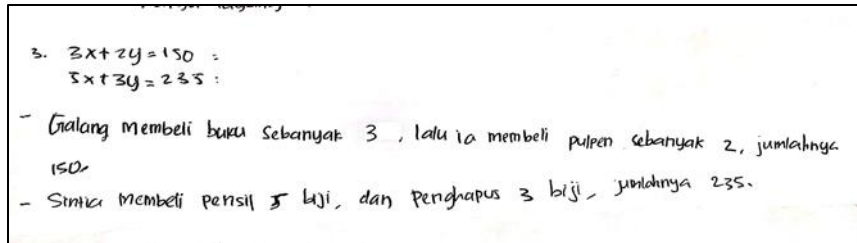 3. 3x+2y=150 :
5x+3y=235 :
- Galang membeli buku sebanyak 3, lalu ia membeli pulpen sebanyak 2, jumlahnya
150.
- Sintia membeli pensil 5 biji, dan Penghapus 3 biji, jumlahnya 235.